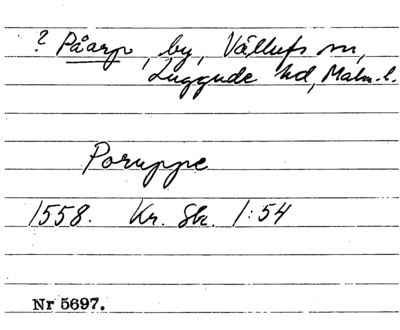 ? Påarp, by, Vällufs sn,
Luggude hd, Malm. l.
Poruppe
1558. Kr. Sk. 1:54
Nr 5697.